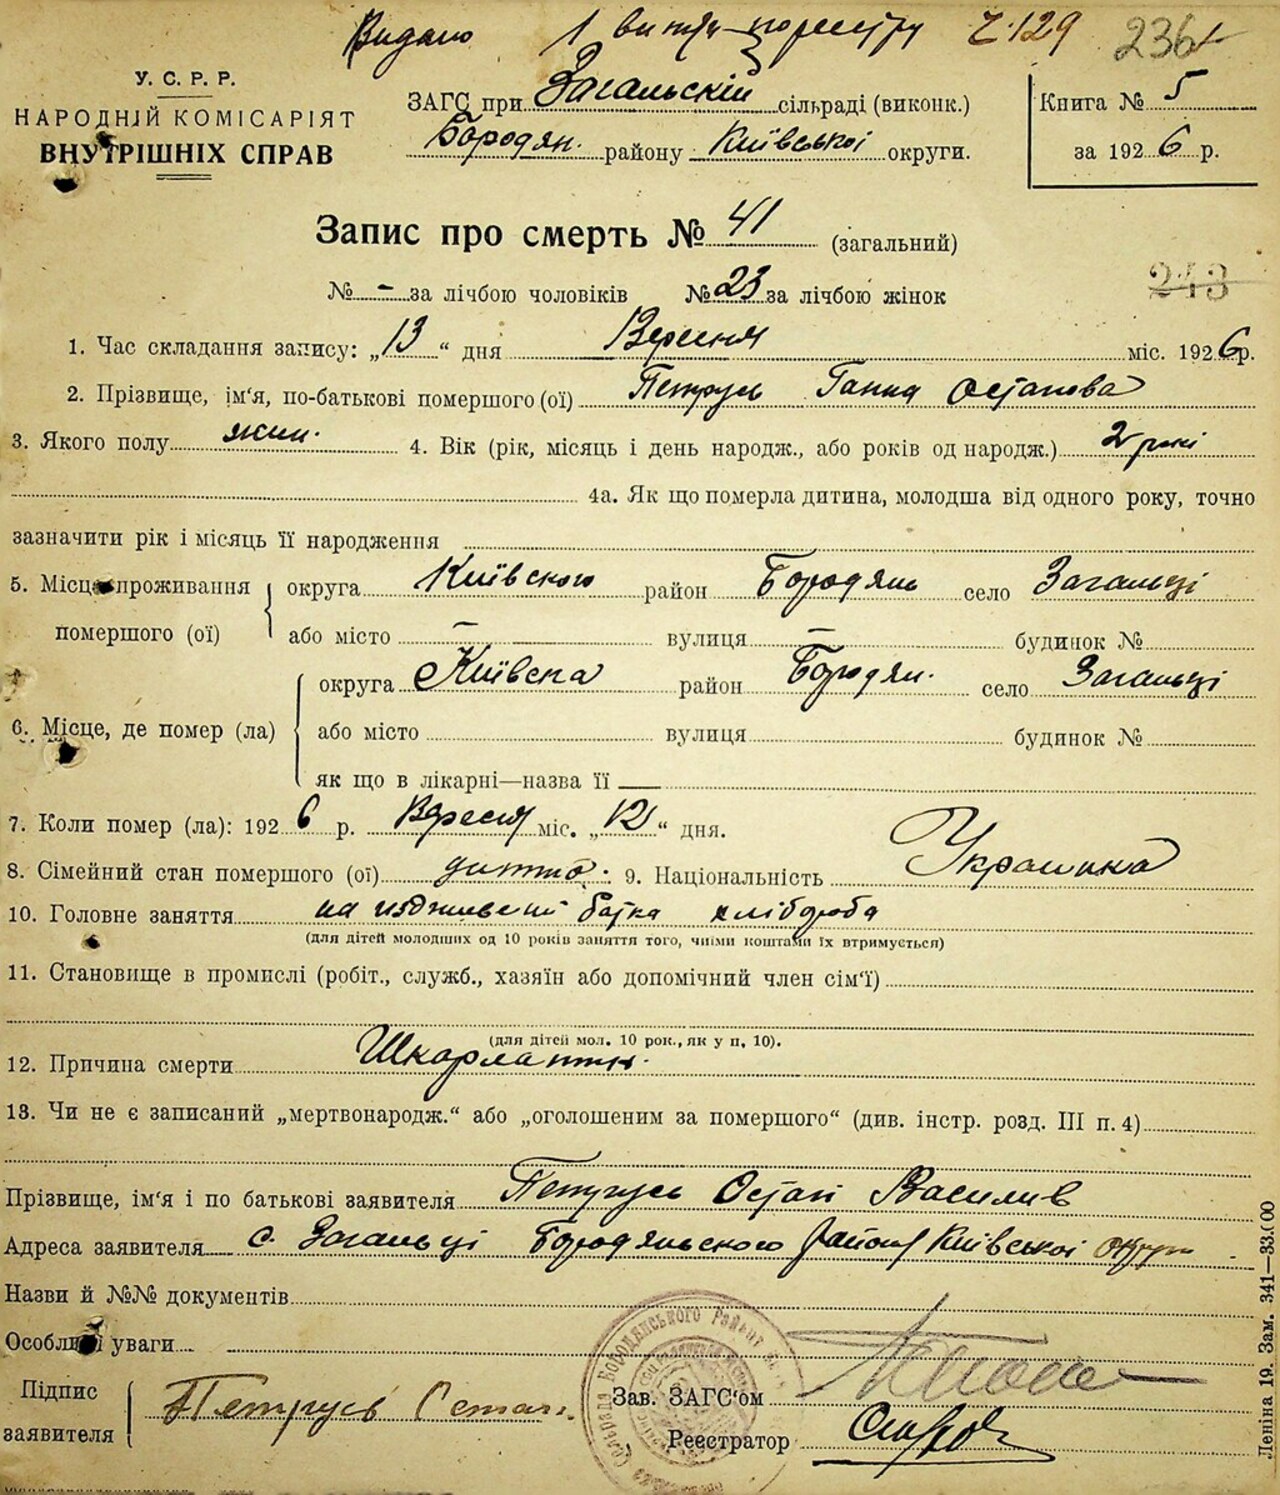 Видано 1 витяг по реєстру Ч. 129 236
У. С. Р. Р.
НАРОДНІЙ КОМІСАРІЯТ
ВНУТРІШНІХ СПРАВ
ЗАГС при Загальскій сільраді (виконк.)
Бородян. району Київської округи.
Книга № 5
за 1926 р.
Запис про смерть № 41 (загальний)
№ - за лічбою чоловіків № 23 за лічбою жінок
243
1. Час складання запису: „13“ дня Вересня міс. 1926 р.
2. Прізвище, ім'я, по-батькові помершого (ої) Петрусь Ганна Остапова
3. Якого полу жин. 4. Вік (рік, місяць і день народж., або років од народж.) 2 рокі
4а. Як що померла дитина, молодша від одного року, точно
зазначити рік і місяць її народження
5. Місце проживання помершого (ої) округа Київского район Бородянь село Загальці
або місто — вулиця — будинок №
6. Місце, де помер (ла) округа Київска район Бородян. село Загальці
або місто вулиця будинок №
як що в лікарні—назва її —
7. Коли помер (ла): 1926 р. Вересня міс. „12“ дня.
8. Сімейний стан помершого (ої) дитина. 9. Національність Украинка
10. Головне заняття на издживені батка хлібороба
(для дітей молодших од 10 років заняття того, чиїми коштами їх втримується)
11. Становище в промислі (робіт., служб., хазяїн або допомічний член сім'ї)
(для дітей мол. 10 рок., як у п, 10).
12. Причина смерти Шкарлатин.
13. Чи не є записаний „мертвонародж.“ або „оголошеним за помершого“ (див. інстр. розд. III п. 4)
Прізвище, ім'я і по батькові заявителя Петрусь Остап Василив
Адреса заявителя с. Загальці Бородяньского Району Київської округи
Назви й №№ документів
Особливі уваги
Підпис заявителя Петрусь Остап.
Зав. ЗАГС'ом
Реєстратор
Леніна 19. Зам. 341—33.000